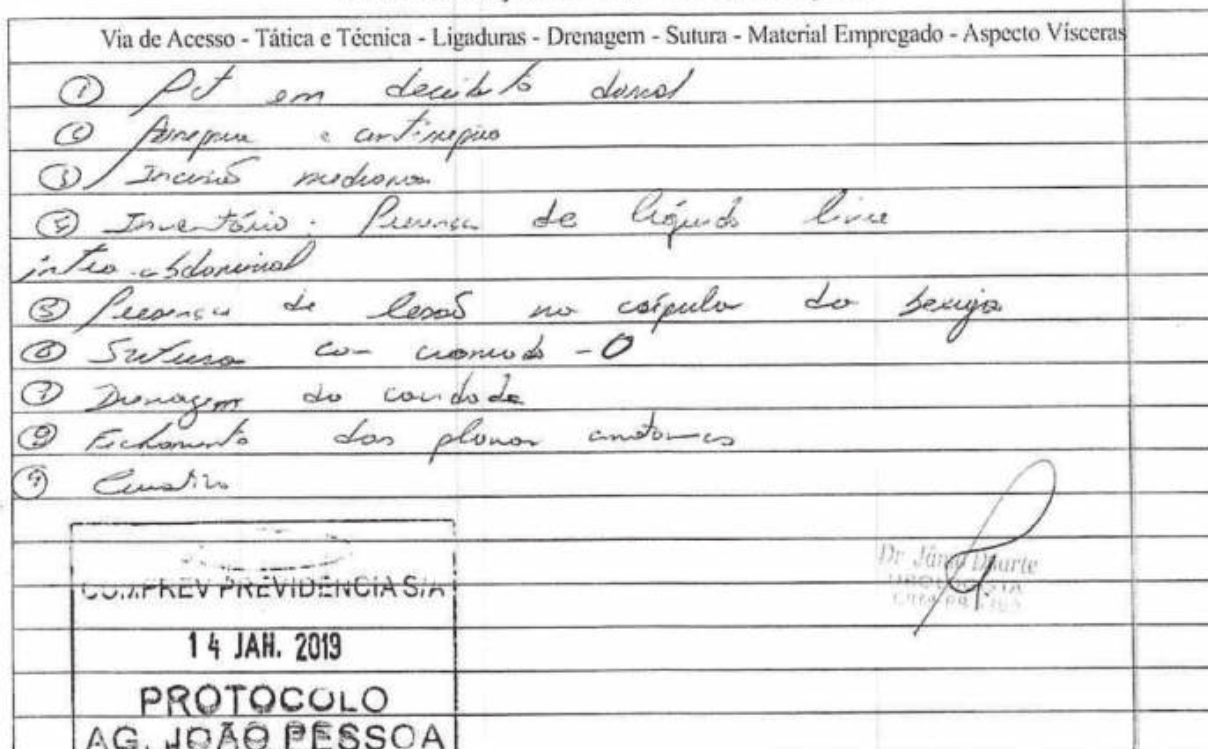 Via de Acesso - Tática e Técnica - Ligaduras - Drenagem - Sutura - Material Empregado - Aspecto Vísceras
① Pct em decúbito dorsal
② Assepsia e antissepsia
③ Incisão mediana
④ Inventário: Presença de líquido livre
intra-abdominal
⑤ Presença de lesão na cúpula da bexiga
⑥ Sutura com cromado - 0
⑦ Drenagem da cavidade
⑧ Fechamento dos planos anatômicos
⑨ Curativo
COMPREV PREVIDENCIA S/A
14 JAN. 2019
PROTOCOLO
AG. JOÃO PESSOA
Dr Jânio Duarte
UROLOGISTA